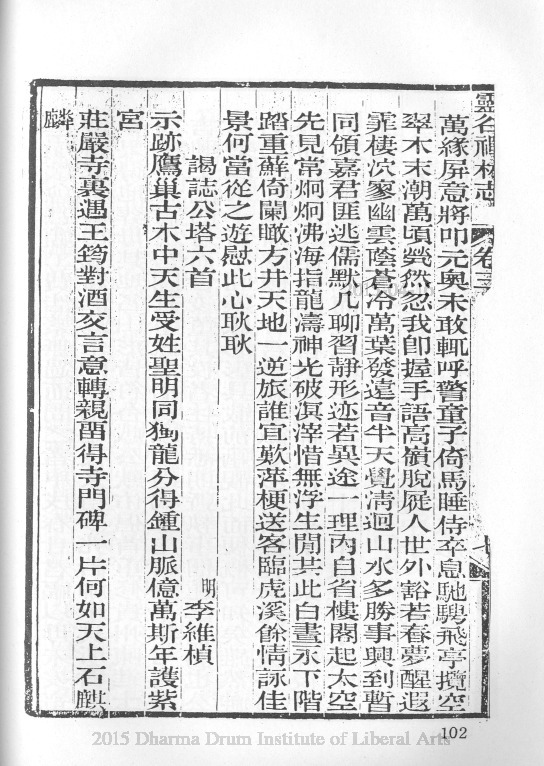 靈谷禪林志 卷十三
萬緣屏意將叩元奧未敢輒呼警童子倚馬睡侍卒息馳騁飛亭攬空
翠木末潮萬頃煢然忽我卽握手語高嶺脫屣人世外豁若春夢醒遐
霏棲泬寥幽雲蔭蒼冷萬葉發遠音半天覺淸迥山水多勝事興到暫
同領嘉君匪逃儒默几聊習靜形迹若異途一理內自省樓閣起太空
先見常炯炯沸海指龍濤神光破溟涬惜無浮生閒共此白晝永下階
踏重蘚倚闌瞰方井天地一逆旅誰宜歎萍梗送客臨虎溪餘情詠佳
景何當從之遊慰此心耿耿
謁誌公塔六首
明 李維楨
示跡鷹巢古木中天生受姓聖明同獨龍分得鍾山脈億萬斯年護紫
宮
莊嚴寺裏遇王筠對酒交言意轉親畱得寺門碑一片何如天上石麒
麟
102
2015 Dharma Drum Institute of Liberal Arts